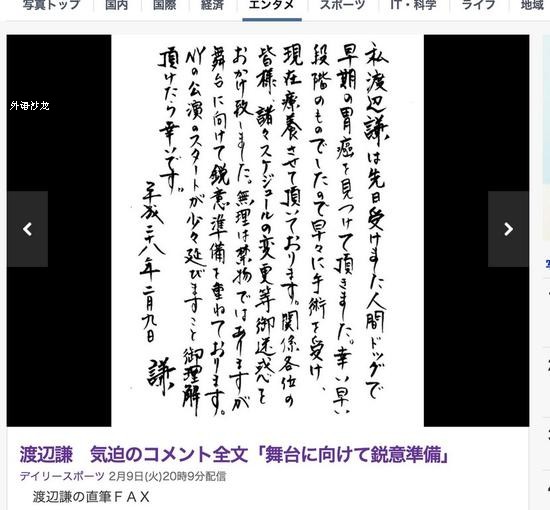 写真トップ 国内 国際 経済 エンタメ スポーツ IT・科学 ライフ 地域
外语沙龙
私渡辺謙は先日受けました人間ドックで
早期の胃癌を見つけて頂きました。幸い早い
段階のものでしたので早々に手術を受け、
現在療養させて頂いております。関係各位の
皆様、諸々スケジュールの変更等御迷惑を
おかけ致しました。無理は禁物ではありますが
舞台に向けて鋭意準備を重ねております。
NYの公演のスタートが少々延びますこと御理解
頂けたら幸いです。
平成二十八年二月九日
謙
渡辺謙 気迫のコメント全文「舞台に向けて鋭意準備」
デイリースポーツ 2月9日(火)20時9分配信
渡辺謙の直筆ＦＡＸ